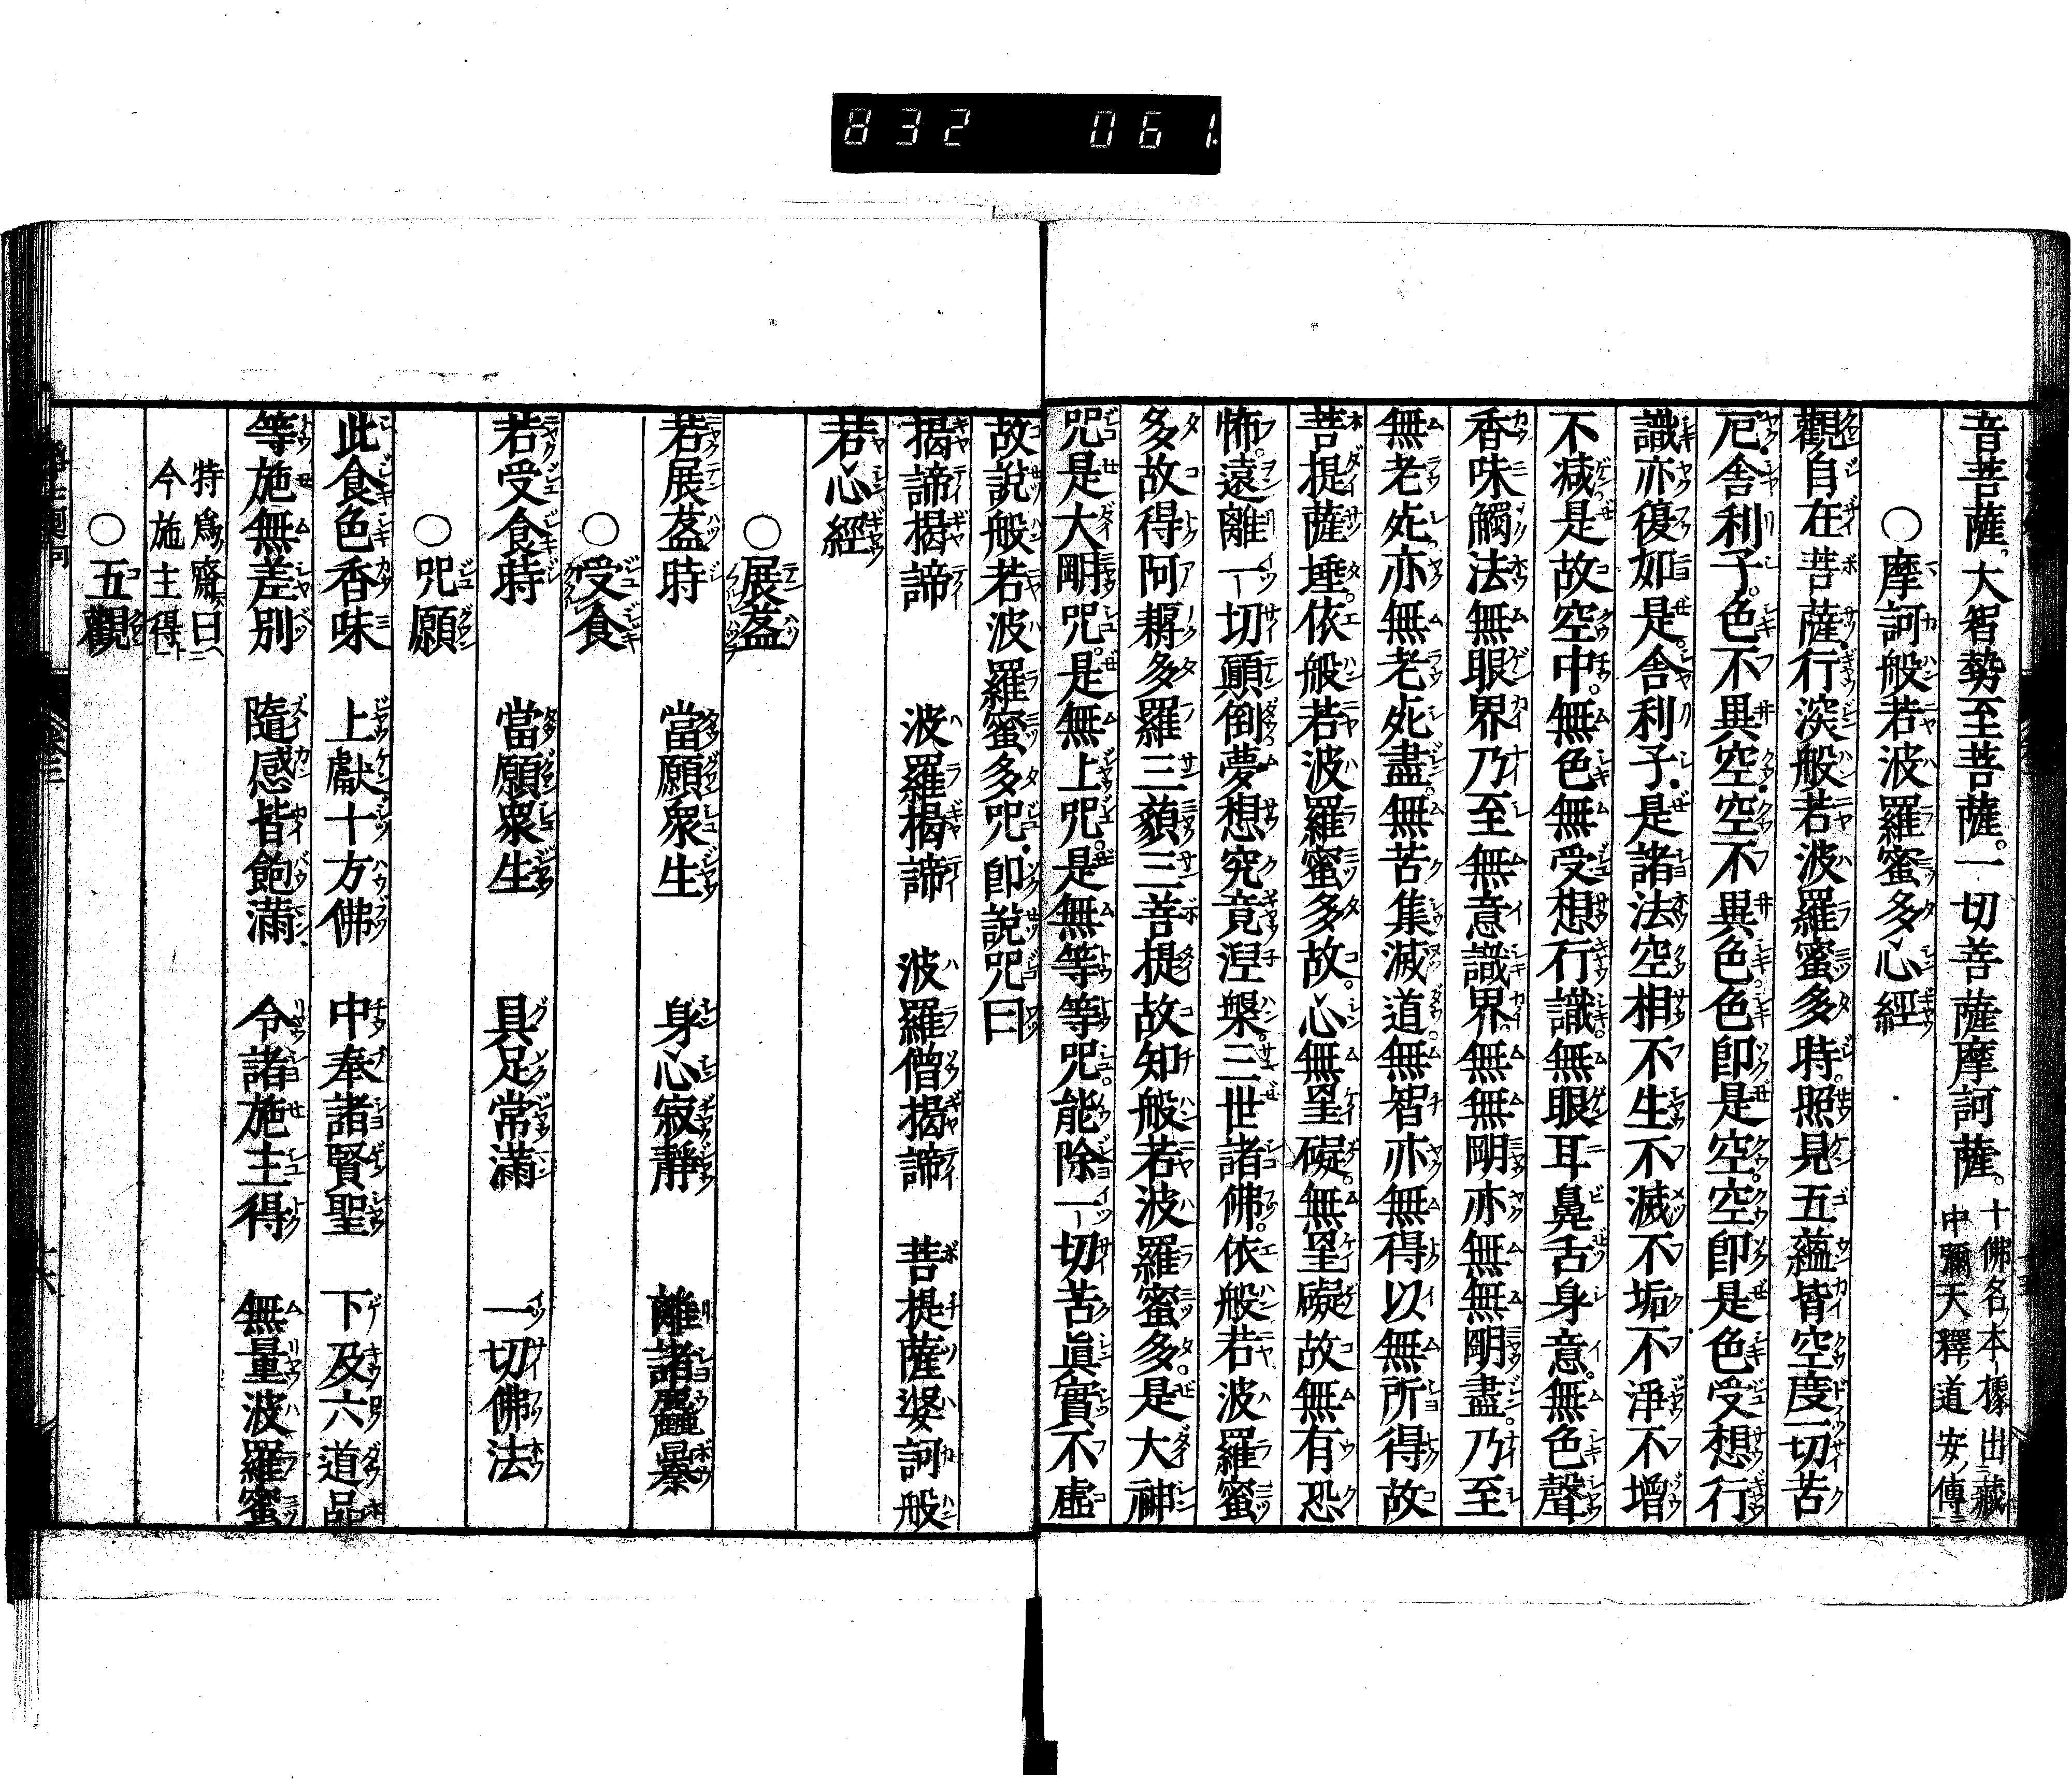 832 061
音菩薩。大智勢至菩薩。一切菩薩摩訶薩。十佛名本據出藏
中彌天釋道安傳
○摩訶般若波羅蜜多心經
觀自在菩薩。行深般若波羅蜜多時。照見五蘊皆空度一切苦
厄。舍利子。色不異空。空不異色。色即是空。空即是色受想行
識亦復如是。舍利子。是諸法空相不生不滅不垢不淨不增
不減是故空中。無色無受想行識。無眼耳鼻舌身意。無色聲
香味觸法無眼界乃至無意識界。無無明亦無無明盡。乃至
無老死。亦無老死盡。無苦集滅道。無智亦無得以無所得故
菩提薩埵。依般若波羅蜜多故。心無罣礙。無罣礙故無有恐
怖。遠離一切顚倒夢想究竟涅槃。三世諸佛。依般若波羅蜜
多故得阿耨多羅三藐三菩提故知般若波羅蜜多。是大神
咒是大明咒。是無上咒。是無等等咒。能除一切苦眞實不虛
故說般若波羅蜜多咒。卽說咒曰
揭諦揭諦 波羅揭諦 波羅僧揭諦 菩提薩婆訶般
若心經
○展盋
若展盋時 當願衆生 身心寂靜 離諸麤暴
○受食
若受食時 當願衆生 具足常滿 一切佛法
○咒願
此食色香味 上獻十方佛 中奉諸賢聖 下及六道品
等施無差別 隨感皆飽滿 令諸施主得 無量波羅蜜
特爲齋曰
今施主得
○五觀